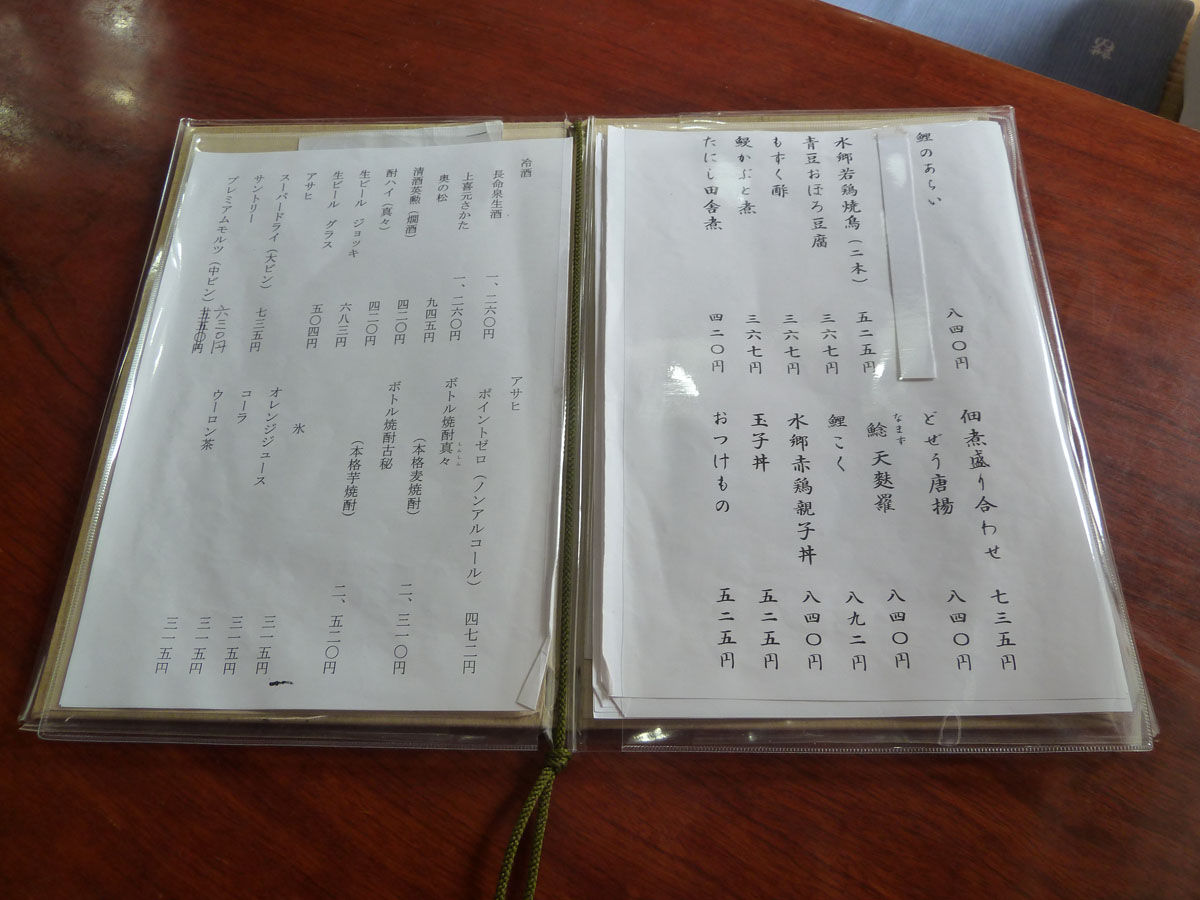 鯉のあらい 八四〇円
水郷若鶏焼鳥（二本） 五二五円
青豆おぼろ豆腐 三六七円
もずく酢 三六七円
鰻かぶと煮 三六七円
たにし田舎煮 四二〇円
佃煮盛り合わせ 七三五円
どぜう唐揚 八四〇円
なまず
鯰天麩羅 八四〇円
鯉こく 八九二円
水郷赤鶏親子丼 八四〇円
玉子丼 五二五円
おつけもの 五二五円
冷酒
長命泉生酒 一、二六〇円
上喜元さかた 一、二六〇円
奥の松 九四五円
清酒英勲（燗酒） 四二〇円
酎ハイ（真々） 四二〇円
生ビール ジョッキ 六八三円
生ビール グラス 五〇四円
アサヒ
スーパードライ（大ビン） 七三五円
サントリー
プレミアムモルツ（中ビン） 六三〇円
アサヒ
ポイントゼロ（ノンアルコール） 四七二円
しんしん
ボトル焼酎真々
（本格麦焼酎） 二、三一〇円
ボトル焼酎古秘
（本格芋焼酎） 二、五二〇円
氷 三一五円
オレンジジュース 三一五円
コーラ 三一五円
ウーロン茶 三一五円